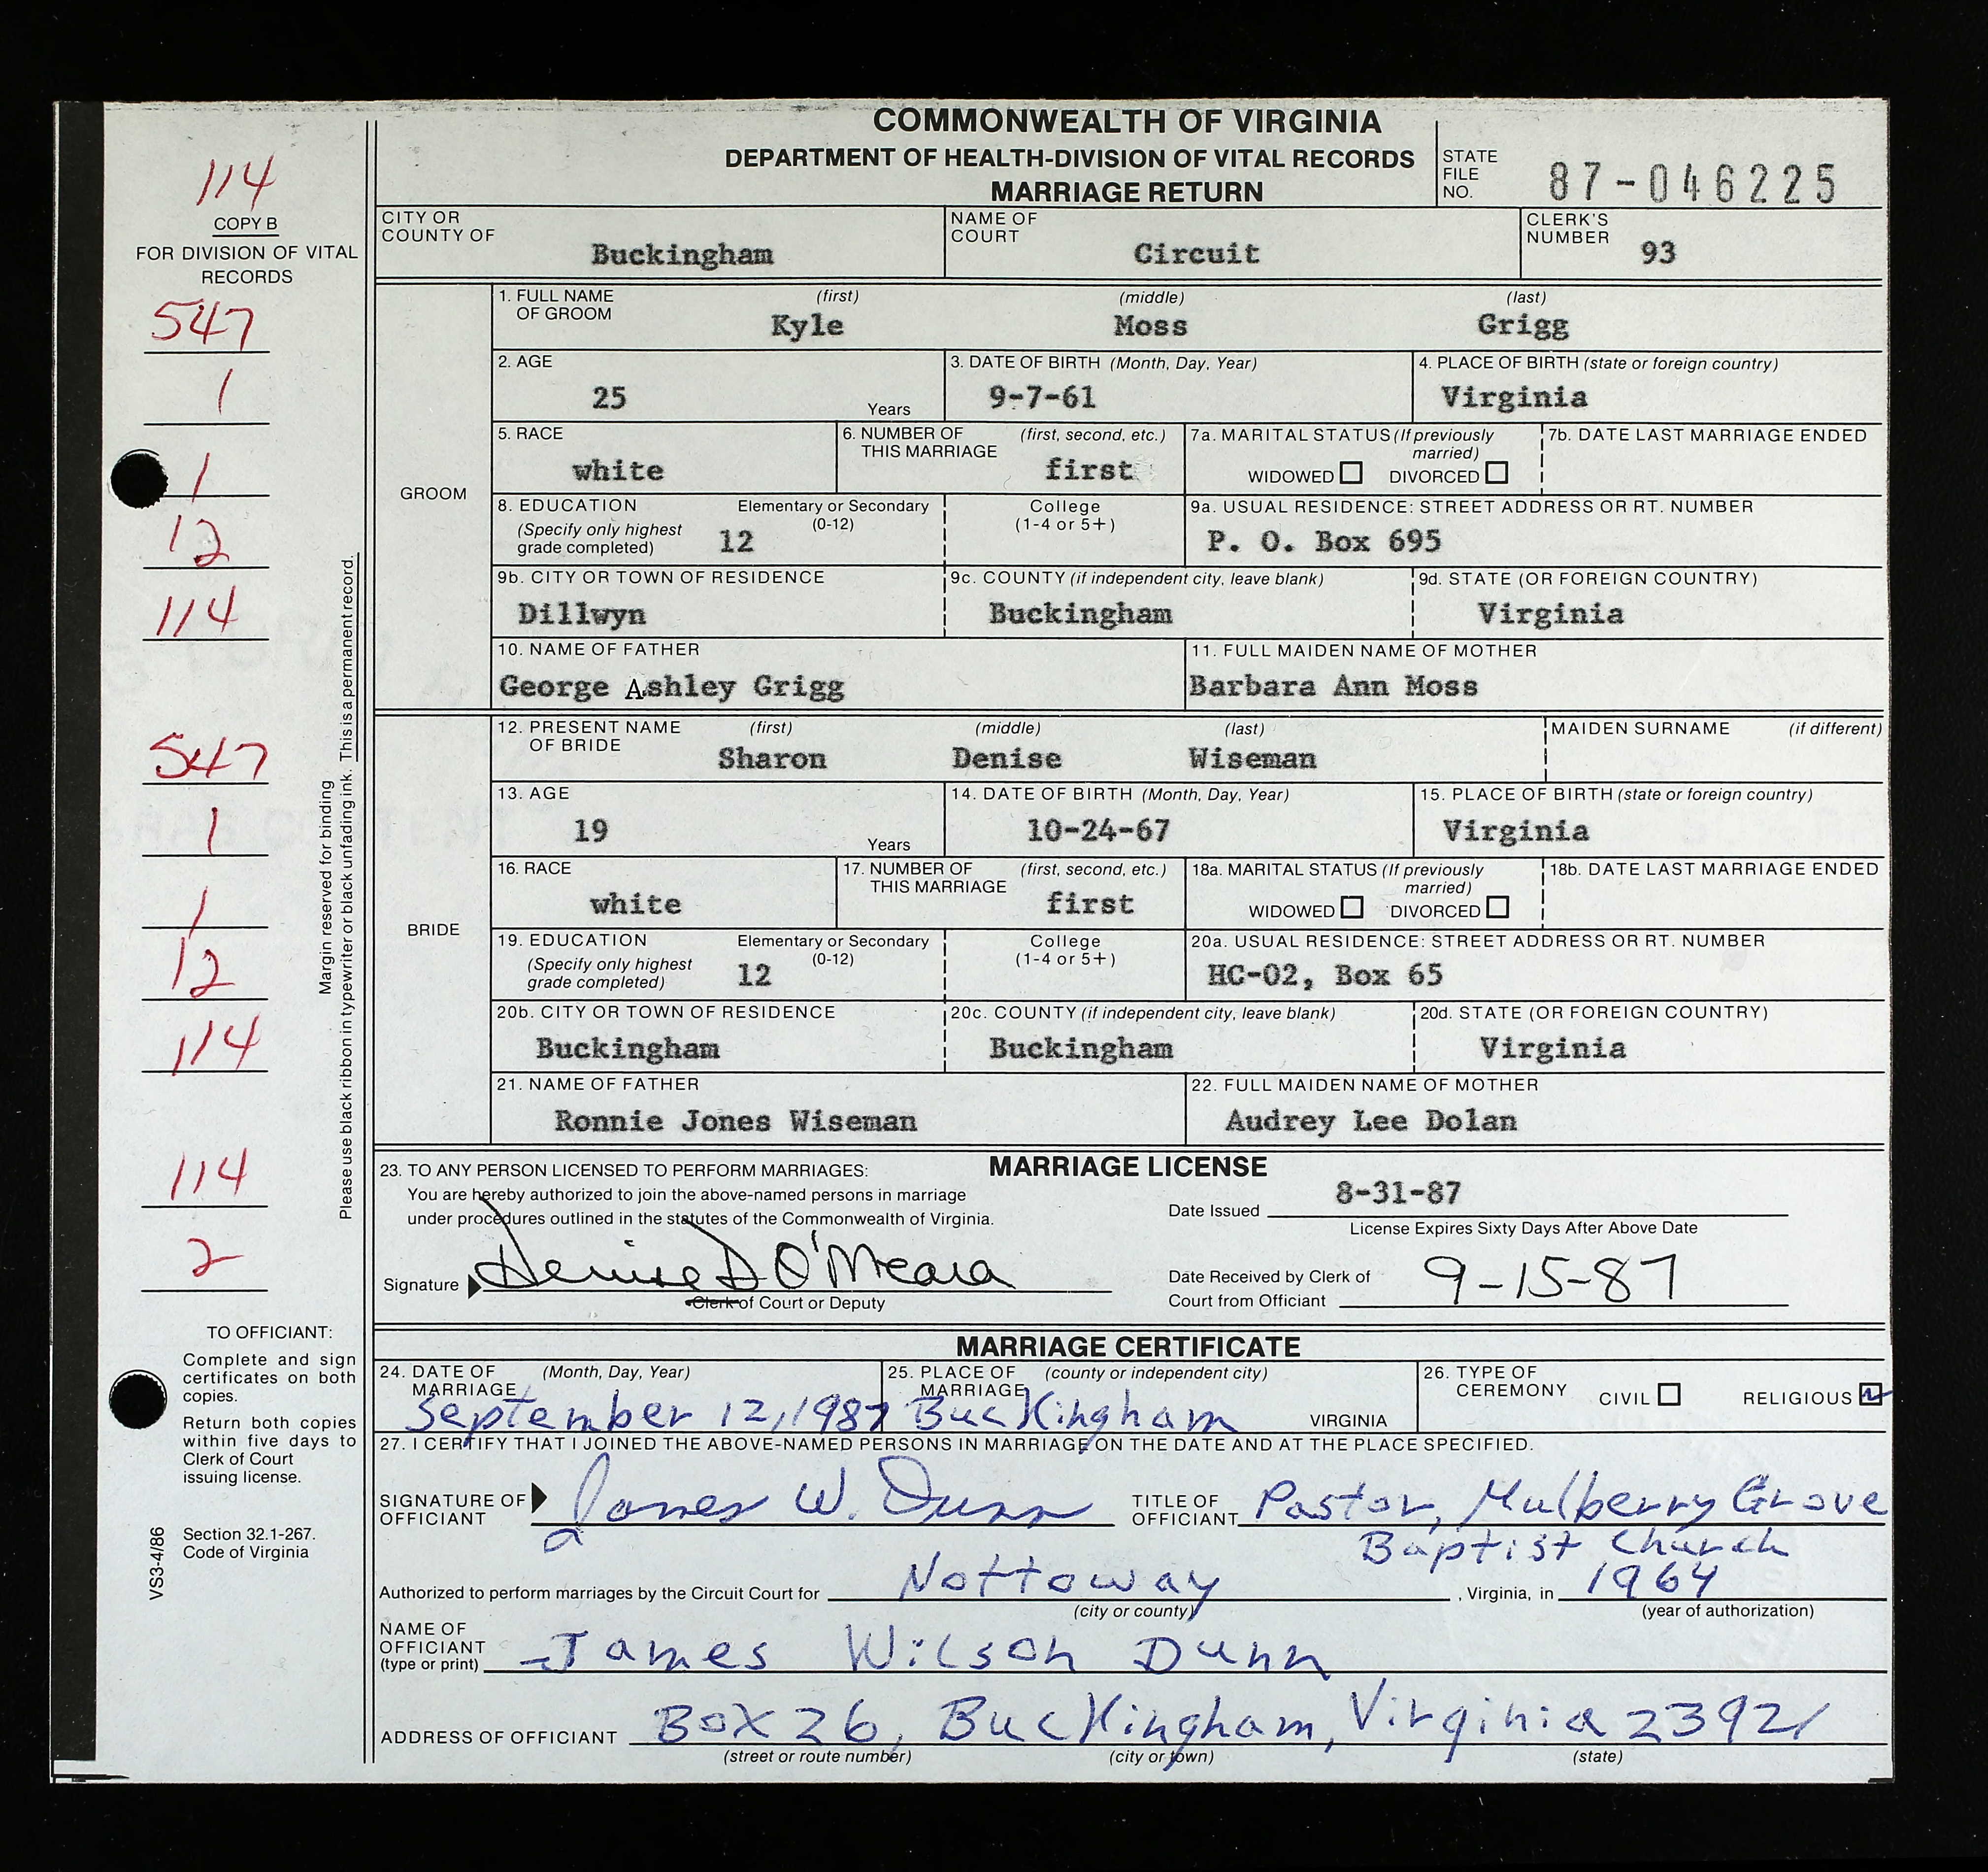 COMMONWEALTH OF VIRGINIA
DEPARTMENT OF HEALTH-DIVISION OF VITAL RECORDS
MARRIAGE RETURN
STATE FILE NO. 87-046225
114
COPY B
FOR DIVISION OF VITAL
RECORDS
547
1
1
12
114
547
1
1
12
114
114
2
Margin reserved for binding
Please use black ribbon in typewriter or black unfading ink. This is a permanent record.
TO OFFICIANT:
Complete and sign
certificates on both
copies.
Return both copies
within five days to
Clerk of Court
issuing license.
Section 32.1-267.
Code of Virginia
VS3-4/86
CITY OR COUNTY OF Buckingham NAME OF COURT Circuit CLERK'S NUMBER 93
GROOM
1. FULL NAME OF GROOM (first) Kyle (middle) Moss (last) Grigg
2. AGE 25 Years 3. DATE OF BIRTH (Month, Day, Year) 9-7-61 4. PLACE OF BIRTH (state or foreign country) Virginia
5. RACE white 6. NUMBER OF THIS MARRIAGE (first, second, etc.) first 7a. MARITAL STATUS (If previously married) WIDOWED DIVORCED 7b. DATE LAST MARRIAGE ENDED
8. EDUCATION (Specify only highest grade completed) Elementary or Secondary (0-12) 12 College (1-4 or 5+) 9a. USUAL RESIDENCE: STREET ADDRESS OR RT. NUMBER P. O. Box 695
9b. CITY OR TOWN OF RESIDENCE Dillwyn 9c. COUNTY (if independent city, leave blank) Buckingham 9d. STATE (OR FOREIGN COUNTRY) Virginia
10. NAME OF FATHER George Ashley Grigg 11. FULL MAIDEN NAME OF MOTHER Barbara Ann Moss
BRIDE
12. PRESENT NAME OF BRIDE (first) Sharon (middle) Denise (last) Wiseman MAIDEN SURNAME (if different)
13. AGE 19 Years 14. DATE OF BIRTH (Month, Day, Year) 10-24-67 15. PLACE OF BIRTH (state or foreign country) Virginia
16. RACE white 17. NUMBER OF THIS MARRIAGE (first, second, etc.) first 18a. MARITAL STATUS (If previously married) WIDOWED DIVORCED 18b. DATE LAST MARRIAGE ENDED
19. EDUCATION (Specify only highest grade completed) Elementary or Secondary (0-12) 12 College (1-4 or 5+) 20a. USUAL RESIDENCE: STREET ADDRESS OR RT. NUMBER HC-02, Box 65
20b. CITY OR TOWN OF RESIDENCE Buckingham 20c. COUNTY (if independent city, leave blank) Buckingham 20d. STATE (OR FOREIGN COUNTRY) Virginia
21. NAME OF FATHER Ronnie Jones Wiseman 22. FULL MAIDEN NAME OF MOTHER Audrey Lee Dolan
MARRIAGE LICENSE
23. TO ANY PERSON LICENSED TO PERFORM MARRIAGES:
You are hereby authorized to join the above-named persons in marriage
under procedures outlined in the statutes of the Commonwealth of Virginia.
Date Issued 8-31-87
License Expires Sixty Days After Above Date
Signature Denise D O'Meara
Clerk of Court or Deputy
Date Received by Clerk of
Court from Officiant 9-15-87
MARRIAGE CERTIFICATE
24. DATE OF MARRIAGE (Month, Day, Year) September 12, 1987 25. PLACE OF MARRIAGE (county or independent city) Buckingham VIRGINIA 26. TYPE OF CEREMONY CIVIL RELIGIOUS
27. I CERTIFY THAT I JOINED THE ABOVE-NAMED PERSONS IN MARRIAGE ON THE DATE AND AT THE PLACE SPECIFIED.
SIGNATURE OF OFFICIANT James W. Dunn TITLE OF OFFICIANT Pastor, Mulberry Grove
Baptist Church
Authorized to perform marriages by the Circuit Court for Nottoway, Virginia, in 1964
(city or county) (year of authorization)
NAME OF OFFICIANT (type or print) James Wilson Dunn
ADDRESS OF OFFICIANT Box 26, Buckingham, Virginia 23921
(street or route number) (city or town) (state)